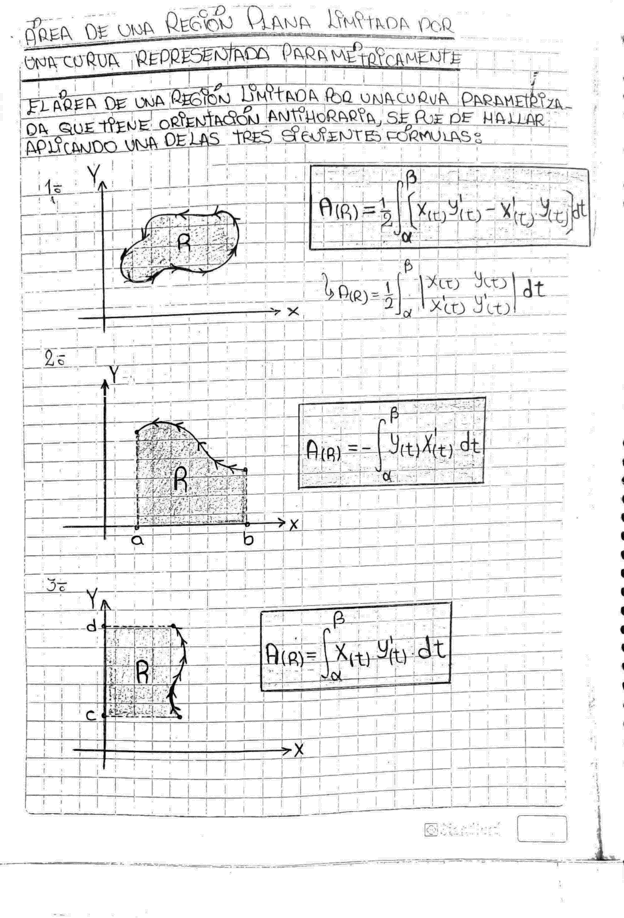 ÁREA DE UNA REGIÓN PLANA LIMITADA POR
UNA CURVA REPRESENTADA PARAMÉTRICAMENTE
EL ÁREA DE UNA REGIÓN LIMITADA POR UNA CURVA PARAMETRIZA-
DA QUE TIENE ORIENTACIÓN ANTIHORARIA, SE PUEDE HALLAR
APLICANDO UNA DE LAS TRES SIGUIENTES FÓRMULAS:
1º
Y
R
X
A(R) = 1/2 ∫_α^β [X(t) Y'(t) - X'(t) Y(t)] dt
↳ A(R) = 1/2 ∫_α^β | X(t) Y(t) |
| X'(t) Y'(t) | dt
2º
Y
R
a
b
X
A(R) = - ∫_α^β Y(t) X'(t) dt
3º
Y
d
R
c
X
A(R) = ∫_α^β X(t) Y'(t) dt